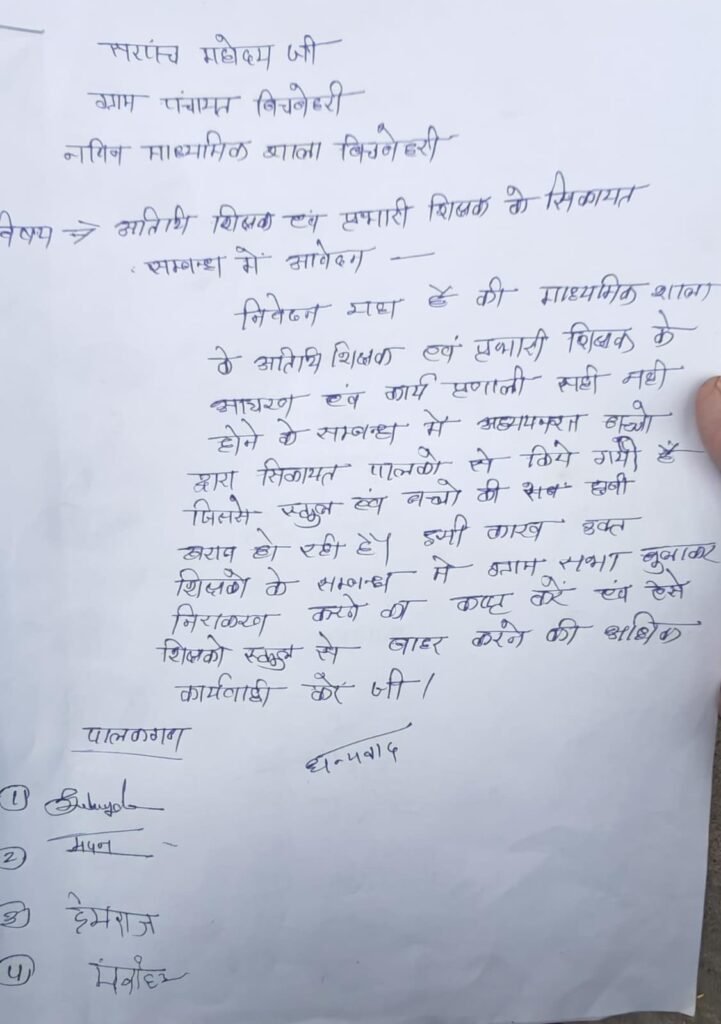 सरपंच महोदय जी
ग्राम पंचायत बिचबेहरी
नविन माध्यमिक शाला बिचबेहरी
विषय → अतिथि शिक्षक एवं प्रभारी शिक्षक के सिकायत
सम्बन्ध में आवेदन —
निवेदन यह है की माध्यमिक शाला
के अतिथि शिक्षक एवं प्रभारी शिक्षक के
आचरण एवं कार्य प्रणाली सही नही
होने के सम्बन्ध में अध्ययनरत बच्चो
द्वारा सिकायत पालको से किये गयी है
जिससे स्कुल एवं बच्चो की छबी
खराब हो रही है। इसी कारण उक्त
शिक्षको के सम्बन्ध मे ग्राम सभा बुलाकर
निराकरण करने का कष्ट करें एवं ऐसे
शिक्षको स्कुल से बाहर करने की
कार्यवाही करें जी।
पालकगण
धन्यवाद
1
2 मदन
3 हेमराज
4